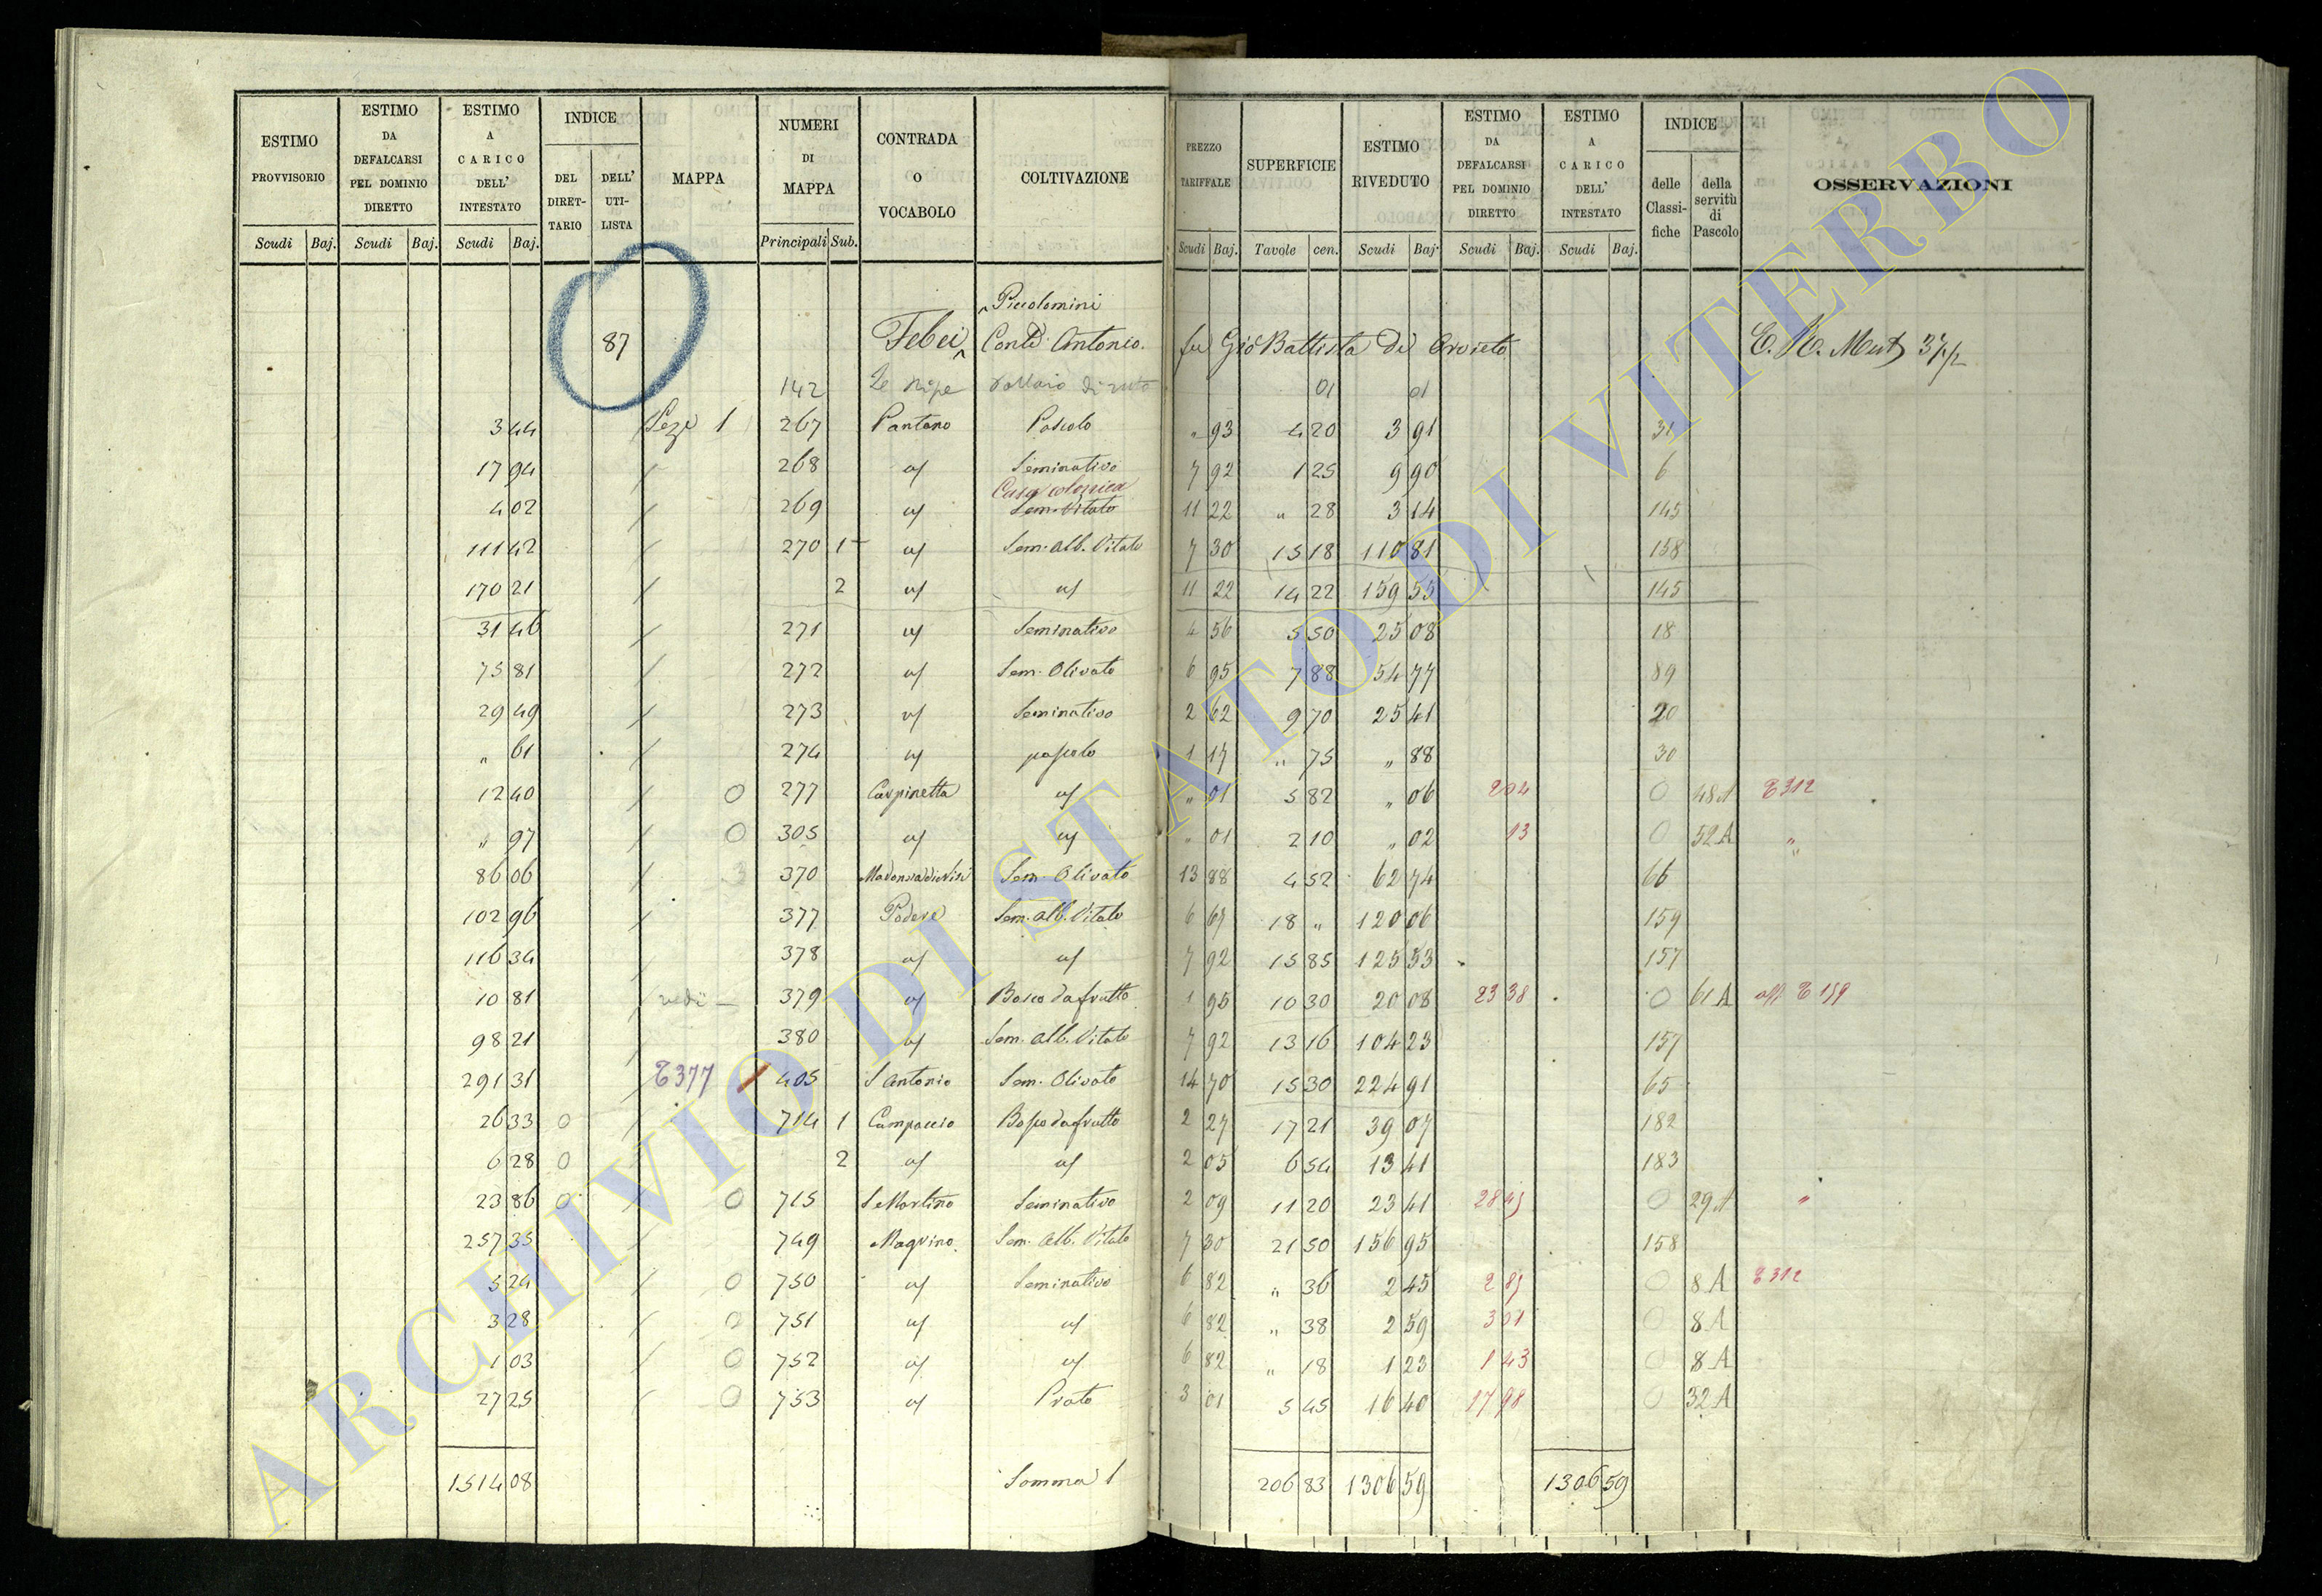 ESTIMO PROVVISORIO | ESTIMO DA DEFALCARSI PEL DOMINIO DIRETTO | ESTIMO A CARICO DELL' INTESTATO | INDICE DEL DIRETTARIO | DELL' UTILISTA | MAPPA | NUMERI DI MAPPA | CONTRADA O VOCABOLO | COLTIVAZIONE | PREZZO TARIFFALE | SUPERFICIE | ESTIMO RIVEDUTO | ESTIMO DA DEFALCARSI PEL DOMINIO DIRETTO | ESTIMO A CARICO DELL' INTESTATO | INDICE delle Classifiche | della servitù di Pascolo | OSSERVAZIONI
Scudi Baj. Scudi Baj. Scudi Baj. Principali Sub. Scudi Baj. Tavole cen. Scudi Baj. Scudi Baj. Scudi Baj.
Piccolomini
87 Febei Conte Antonio fu Gio Battista di Orvieto
142 Le Ripe 01 01
3 44 1 267 Pantano Pascolo " 93 4 20 3 91 31
17 94 268 a/ Seminativo 7 92 1 25 9 90 6
Casa colonica
4 02 269 a/ Sem. Vitato 11 22 " 28 3 14 145
111 42 270 1 a/ Sem. Alb. Vitato 7 30 15 18 110 81 158
170 21 2 a/ a/ 11 22 14 22 159 55 145
31 46 271 a/ Seminativo 4 56 5 50 25 08 18
75 81 272 a/ Sem. Olivato 6 95 7 88 54 77 89
29 49 273 a/ Seminativo 2 62 9 70 25 41 20
" 61 274 a/ pascolo 1 17 " 75 " 88 30
12 40 0 277 Carpinetta a/ " 01 5 82 " 06 2 04 0 48A E312
" 97 0 305 a/ a/ " 01 2 10 " 02 13 0 52A "
86 06 3 370 Sem. Olivato 13 88 4 52 62 74 66
102 96 377 Podere Sem. Alb. Vitato 6 67 18 " 120 06 159
116 34 378 a/ a/ 7 92 15 85 125 53 157
10 81 vedi 379 a/ Bosco da frutto 1 95 10 30 20 08 23 38 0 61A E 159
98 21 380 a/ Sem. Alb. Vitato 7 92 13 16 104 23 157
291 31 E377 405 S Antonio Sem. Olivato 14 70 15 30 224 91 65
26 33 0 714 1 Campaccio Bosco da frutto 2 27 17 21 39 07 182
6 28 0 2 a/ a/ 2 05 6 54 13 41 183
23 86 0 0 715 S Martino Seminativo 2 09 11 20 23 41 0 29A "
257 35 749 Sem. Alb. Vitato 7 30 21 50 156 95 158
5 24 0 750 a/ Seminativo 6 82 " 36 2 45 0 8A E312
3 28 0 751 a/ a/ 6 82 " 38 2 59 3 01 0 8A
1 03 0 752 a/ a/ 6 82 " 18 1 23 1 43 0 8A
27 25 0 753 a/ Prato 3 01 5 45 16 40 17 98 0 32A
1514 08 Somma 1 206 83 1306 59 1306 59
ARCHIVIO DI STATO DI VITERBO